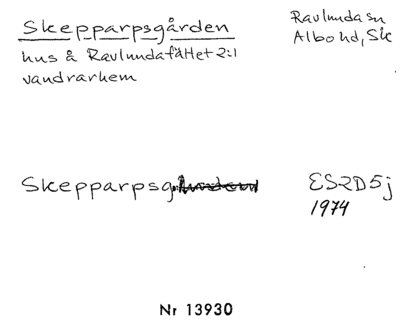 Skepparpsgården
Ravlunda sn
Albo hd, Sk
hus å Ravlundafältet 2:1
vandrarhem
Skepparpsg.
ES2D5j
1974
Nr 13930